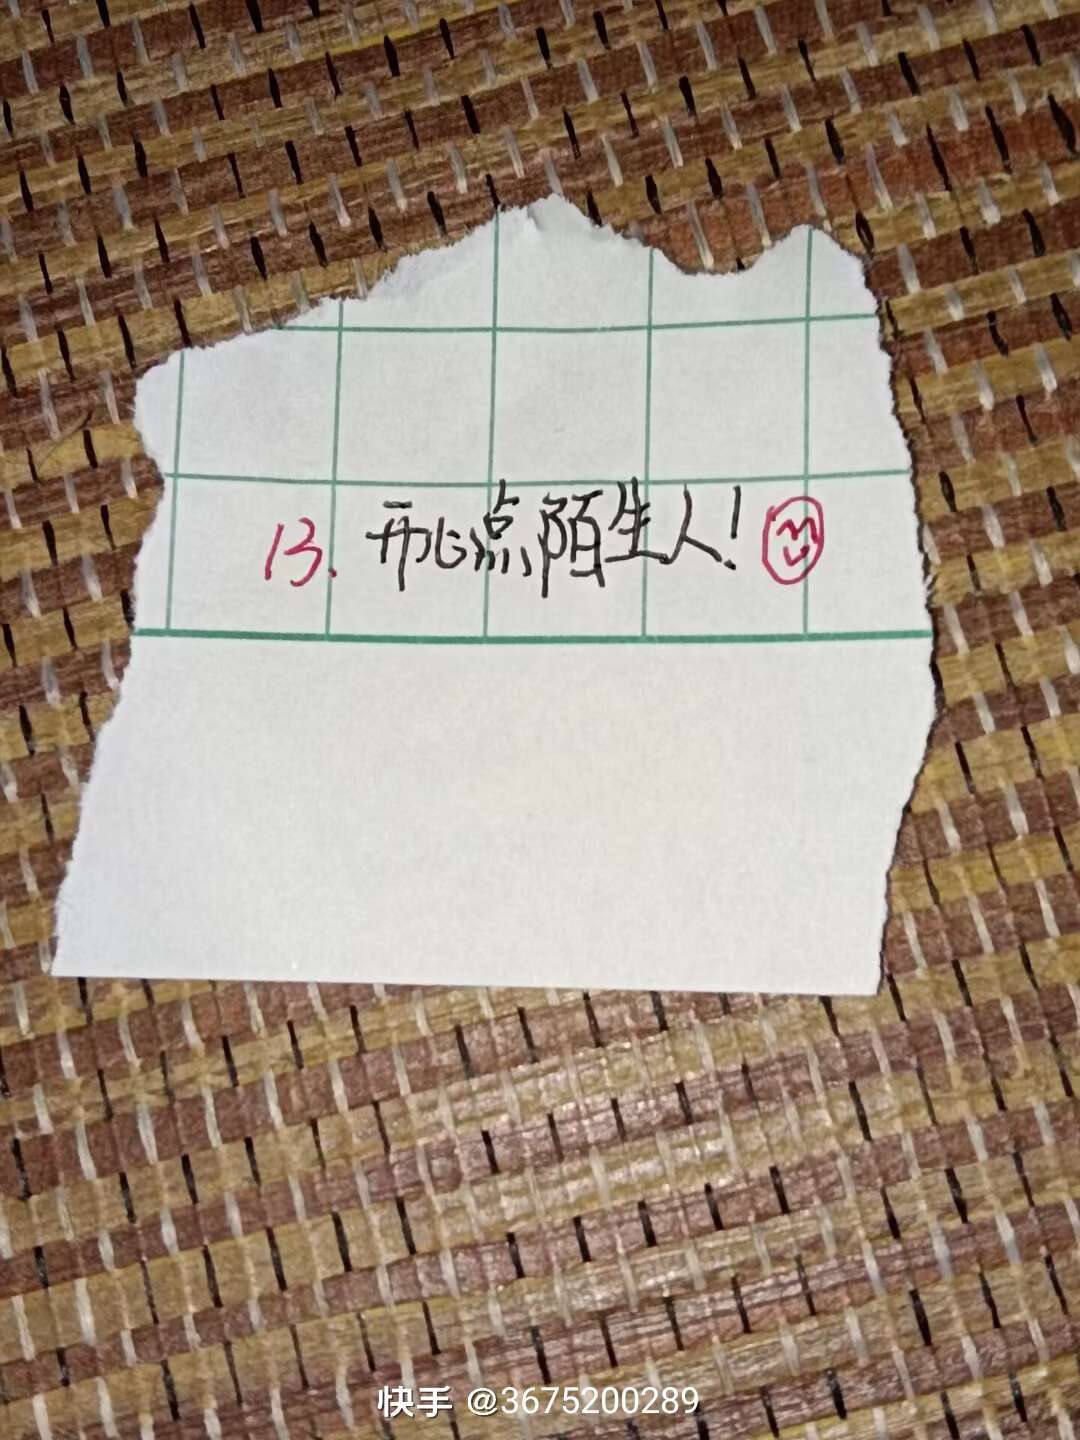 13. 开心点陌生人!
快手 @3675200289